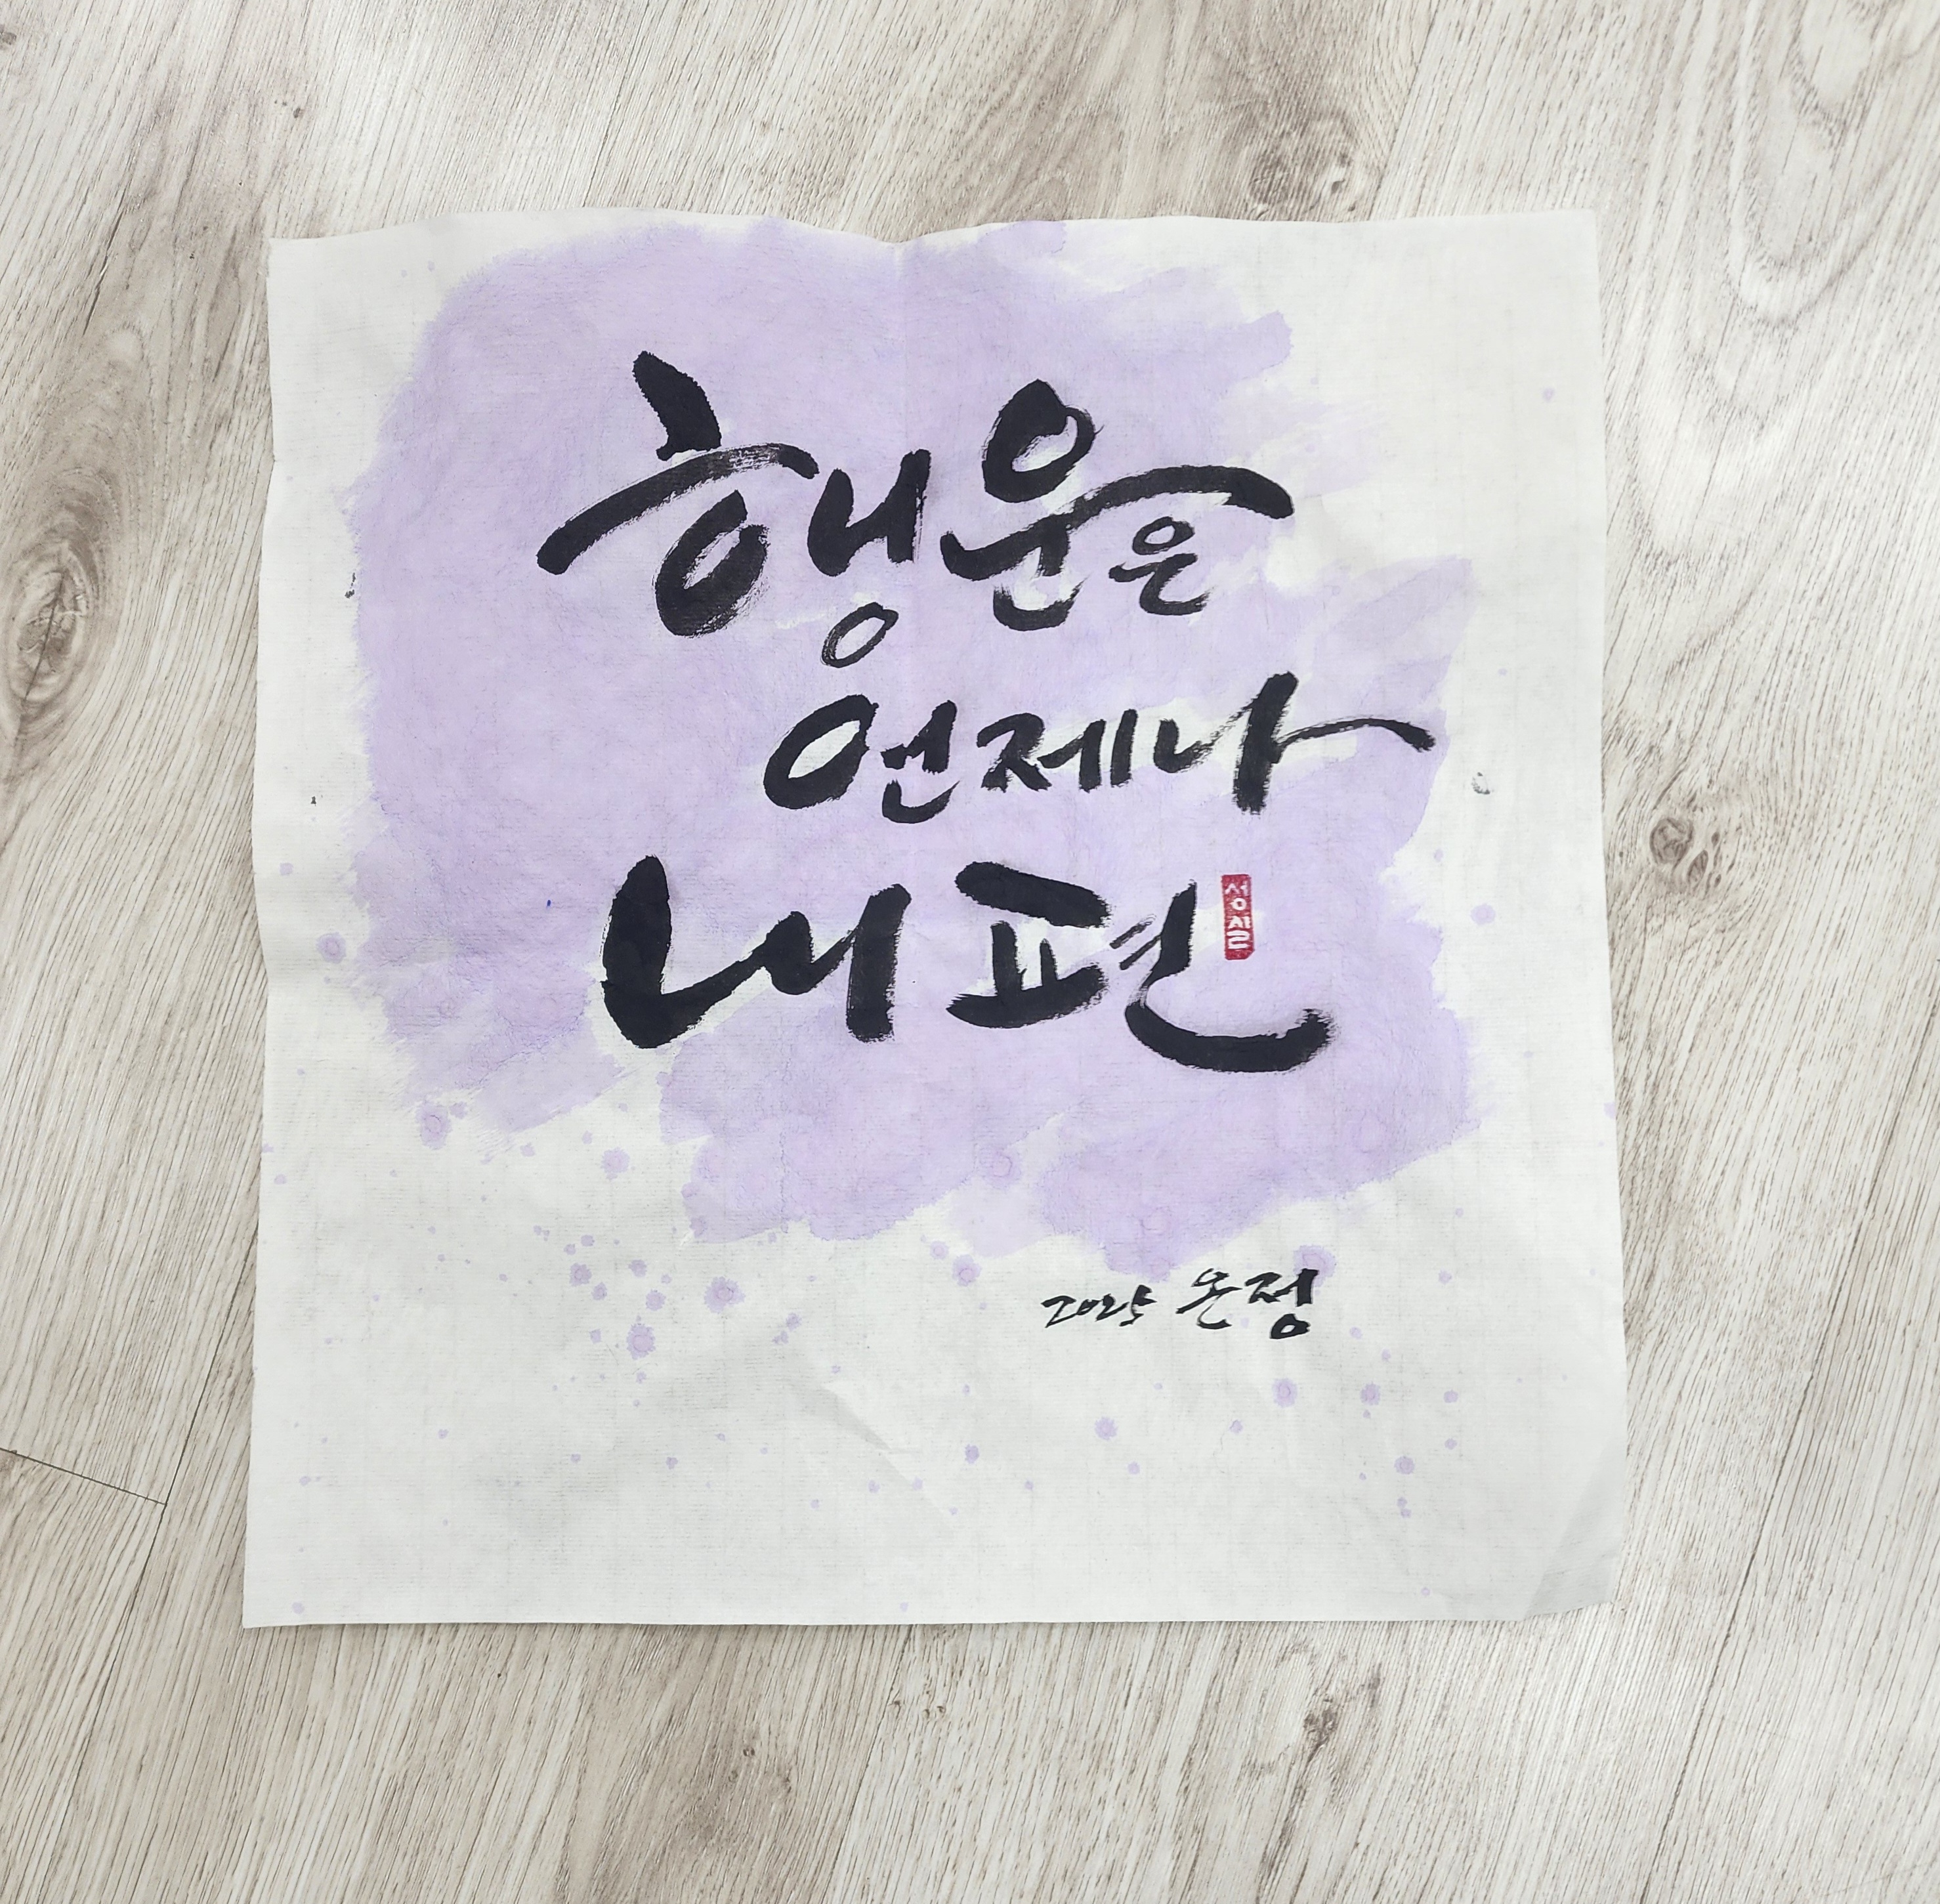 행운은
언제나
내 편
성실
2025 온정